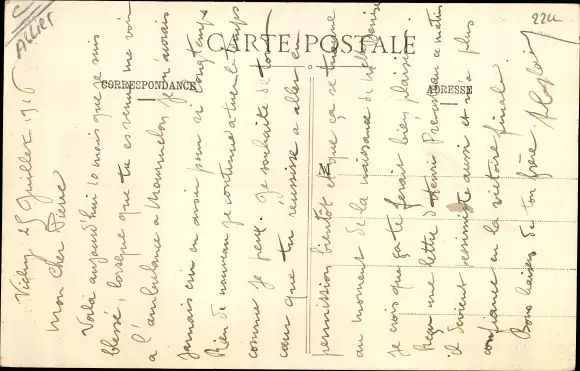 ALLIER
224
CARTE POSTALE
CORRESPONDANCE
ADRESSE
Vichy 25 Juillet 1916
Mon cher Pierre
Voilà aujourd'hui 10 mois que je suis
blessé, lorsque que tu es venu me voir
a l'ambulance a Mourmelon, je n'aurais
jamais cru en avoir pour si longtemps
Rien de nouveau je continue a tuer le temps
comme je peux. Je souhaite de tout
cœur que tu réussisse a aller en
permission bientôt et que ça se trouve
au moment de la naissance de
Je crois que ça te ferait bien plaisir
Reçu une lettre d'Henri ce matin
il devient pessimiste aussi et n'a plus
confiance en la victoire final
Bons baisers de ton frère